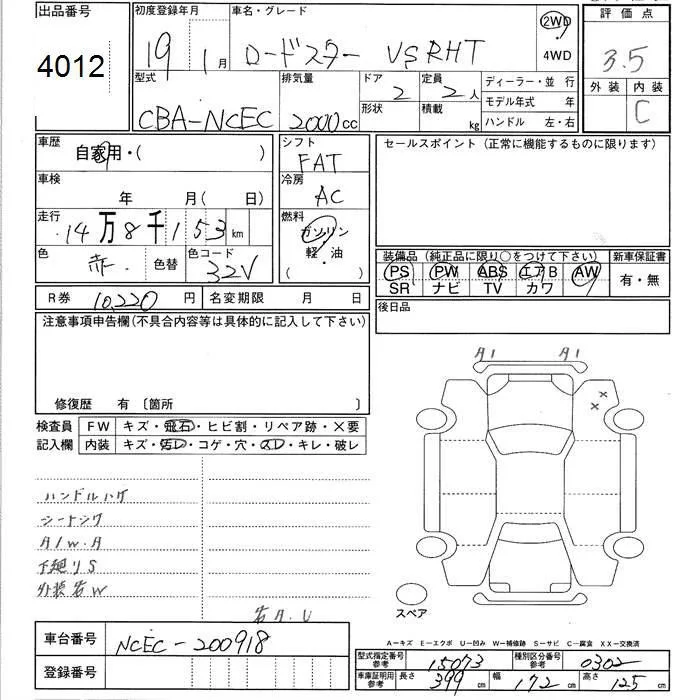 出品番号 4012
初度登録年月 19 1月
車名・グレード ロードスター VS RHT
2WD
4WD
評価点 3.5
外装 内装 C
型式 CBA-NCEC
排気量 2000cc
ドア 2
形状
定員 2人
積載 kg
ディーラー・並行
モデル年式 年
ハンドル 左・右
車歴 自家用・( )
シフト FAT
セールスポイント(正常に機能するものに限ります)
車検 年 月(日)
冷房 AC
走行 14万8千153km
燃料 ガソリン
軽・油
( )
色 赤 色替 色コード 32V
装備品(純正品に限り○をつけて下さい)
新車保証書
PS PW ABS エアB AW
SR ナビ TV カワ
有・無
R券 10,220円 名変期限 月 日
後日品
注意事項申告欄(不具合内容等は具体的に記入して下さい)
修復歴 有〔箇所 〕
検査員 FW キズ・飛石・ヒビ割・リペア跡・×要
記入欄 内装 キズ・汚レ・コゲ・穴・スレ・キレ・破レ
A1 A1
××
ハンドルハゲ
A1W.A
下廻りS
外装若W
スペア
A-キズ E-エクボ U-凹み W-補修跡 S-サビ C-腐食 XX-交換済
若A.U
車台番号 NCEC-200918
登録番号
型式指定番号 参考 15073
種別区分番号 参考 0302
車庫証明用 参考 長さ 399cm 幅 172cm 高さ 125cm